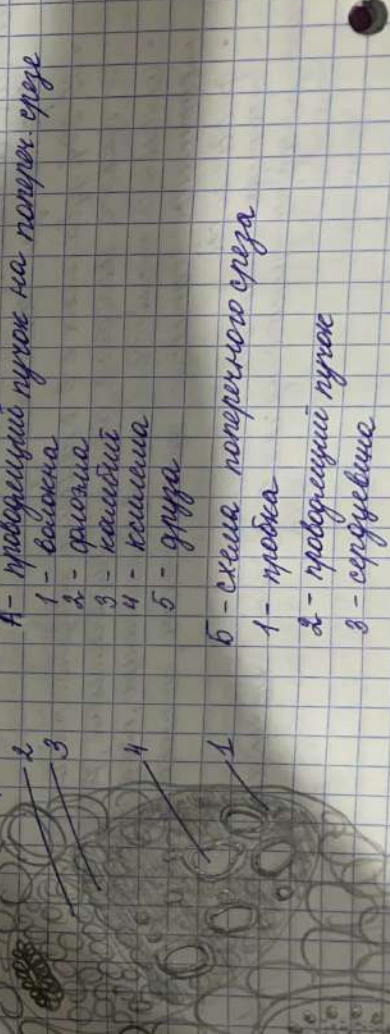 А - проводящий пучок на попереч. срезе
1 - волокна
2 - флоэма
3 - камбий
4 - ксилема
5 - друза
Б - схема поперечного среза
1 - пробка
2 - проводящий пучок
3 - сердцевина
2
3
4
1